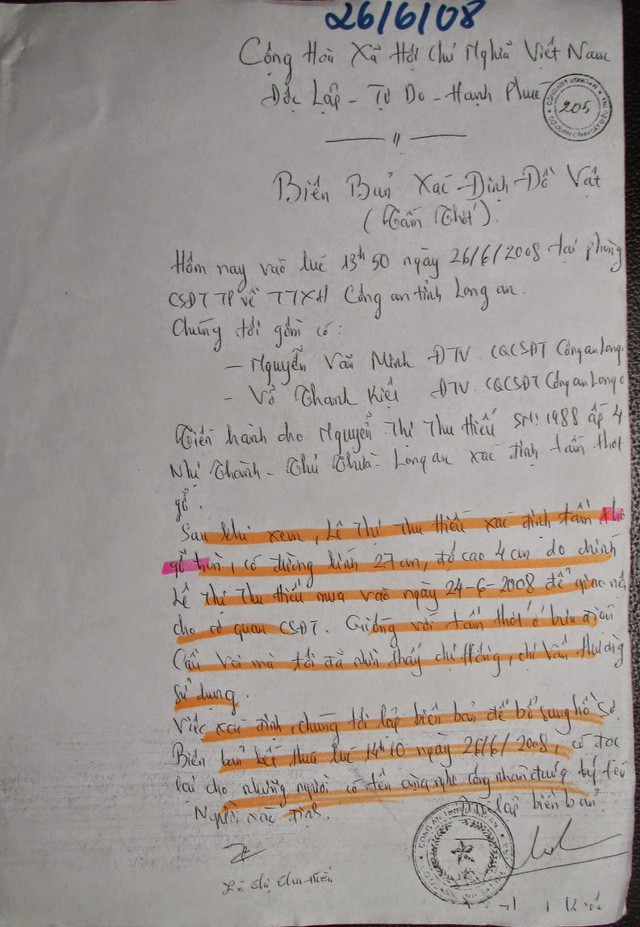 26/6/08
Cộng Hoà Xã Hội Chủ Nghĩa Việt Nam
Độc Lập - Tự Do - Hạnh Phúc
205
Biên Bản Xác Định Đồ Vật
(Tấm Thớt).
Hôm nay vào lúc 13h50 ngày 26/6/2008 tại phòng
CSĐT TP về TTXH Công an tỉnh Long an.
Chúng tôi gồm có:
- Nguyễn Văn Minh ĐTV. CQCSĐT Công an Long
- Võ Thanh Kiệt ĐTV. CQCSĐT Công an Long
Tiến hành cho Nguyễn Thị Thu Hiếu SN: 1988 ấp 4
Nhị Thành - Thủ Thừa - Long an xác định tấm thớt
gỗ.
Sau khi xem, Lê Thị Thu Hiếu xác định tấm thớt
gỗ tròn, có đường kính 27cm, độ cao 4cm do chính
Lê Thị Thu Hiếu mua vào ngày 24-6-2008 để giao nộ
cho cơ quan CSĐT. Giống với tấm thớt ở bưu điện
Cầu Voi mà tôi đã nhìn thấy chị Hồng, chị Vân thường
sử dụng.
Việc xác định, chúng tôi lập biên bản để bổ sung hồ sơ.
Biên bản kết thúc lúc 14h10 ngày 26/6/2008, có đọc
lại cho những người có tên cùng nghe công nhận đúng ký tên
Người xác định. lập biên bản
Lê Thị Thu Hiếu